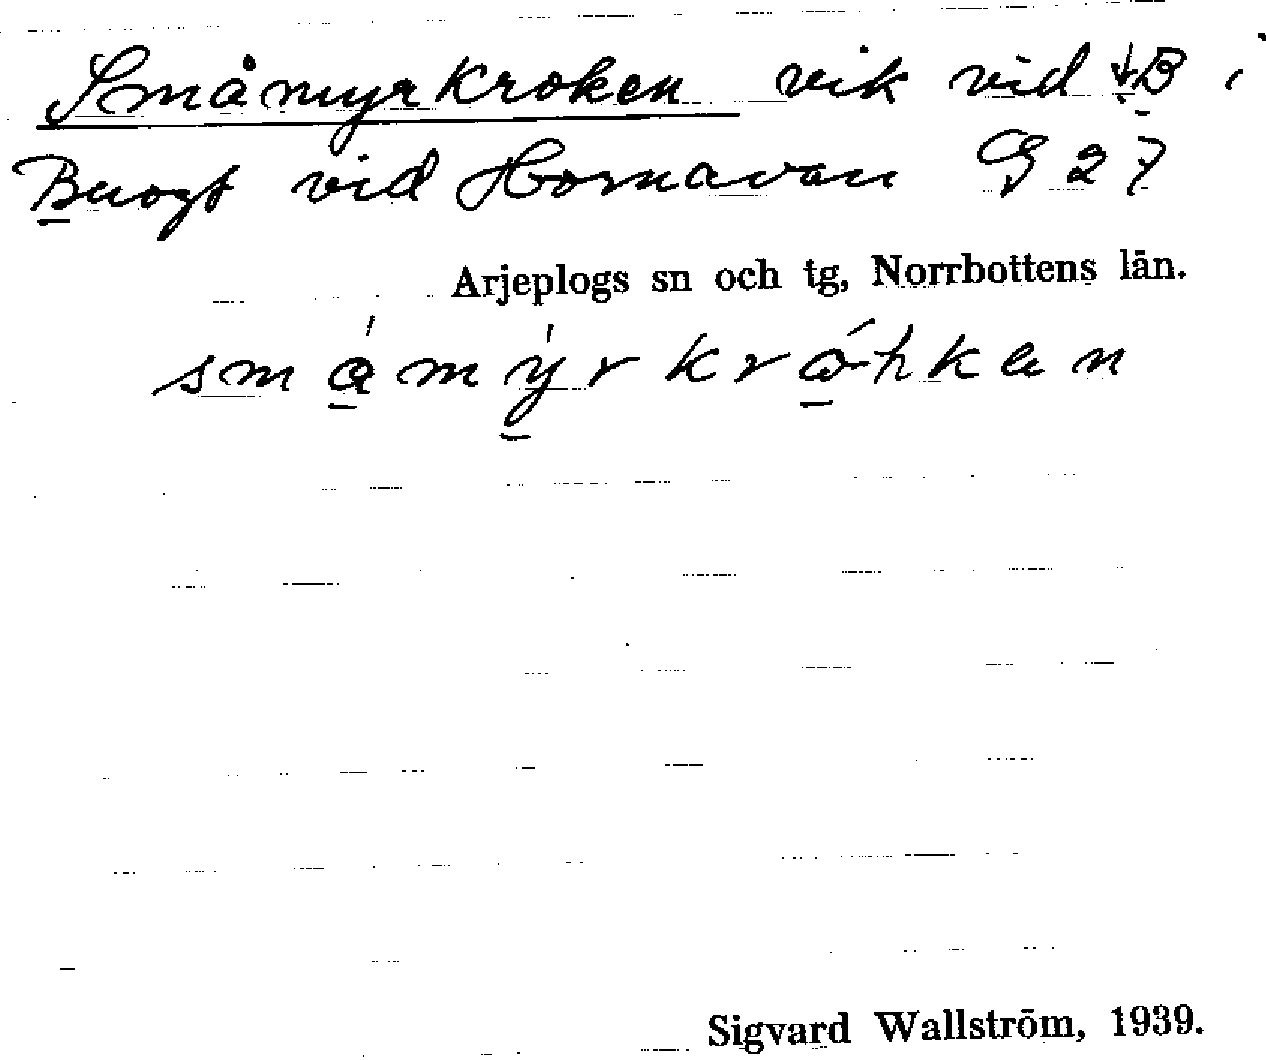 Småmyrkroken vik vid ↓B i
Buogt vid Hornavan G 27
Arjeplogs sn och tg, Norrbottens län.
småmýrkråhkæn
Sigvard Wallström, 1939.